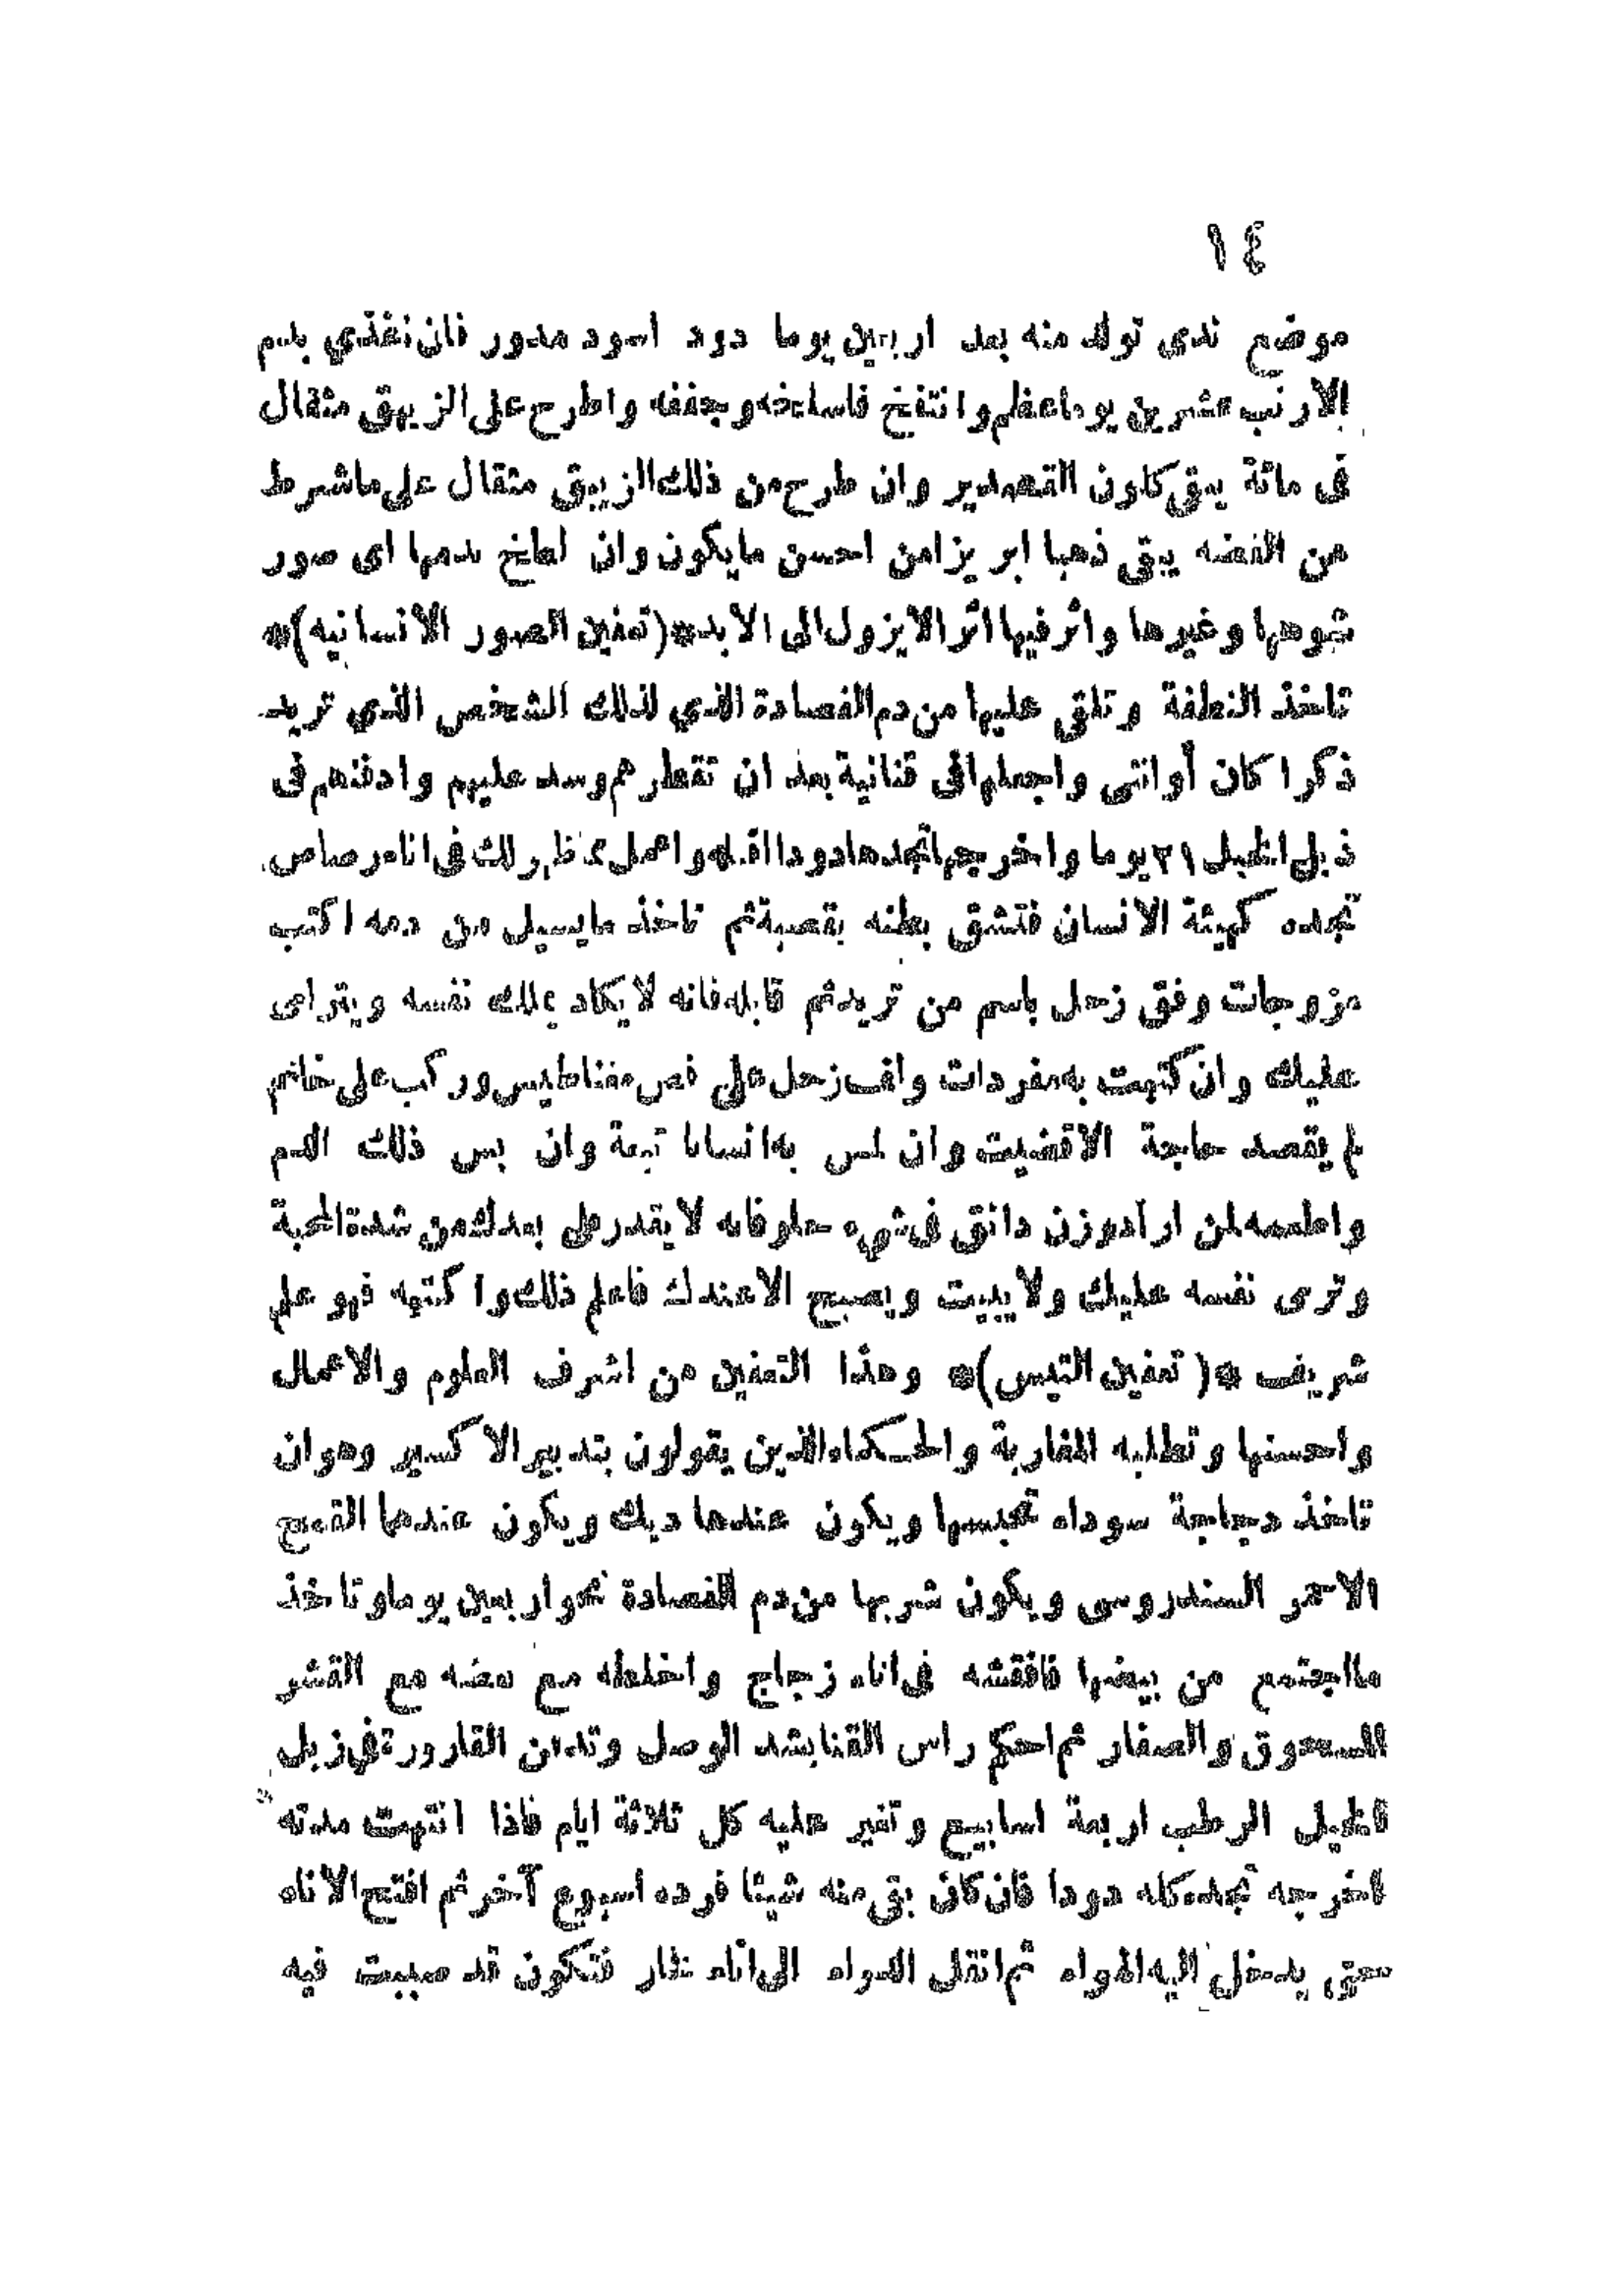 ١٤
موضع ندى تولد منه بعد اربعين يوما دود اسود مدور فان تغذي بدم
الارنب عشرين يوما عظم وانتفخ فاسلخه وجففه واطرح على الزيبق مثقال
فى مائة يبقى كلون القصدير وان طرح من ذلك الزيبق مثقال على ما شرط
من الفضه يبقى ذهبا ابريزا من احسن ما يكون وان لطخ بدمها اى صور
شوهها وغيرها واثر فيها اثرا لا يزول الى الابد *(تعفين الصور الانسانيه)*
تاخذ النطفة وتلق عليها من دم الفصادة الذي لذلك الشخص الذي تريد
ذكرا كان أو انثى واجعلها فى قنانية بعد ان تقطرهم وسد عليهم وادفنهم فى
زبل الخيل ٢١ يوما واخرجها تجدها دودا واعمل كما ظهر لك فى اناء رصاص
تجده كهيئة الانسان فتشق بطنه بقصبة ثم تاخذ ما يسيل من دمه اكتب
مزوجات وفق زحل باسم من تريد ثم قابله فانه لا يكاد يملك نفسه ويترامى
عليك وان كتبت به مفردات وافق زحل على فص مغناطيس وركب على خاتم
لم يقصد حاجة الا قضيت وان لمس به انسانا تبعه وان يبس ذلك الدم
واطعمه لمن اراد بوزن دانق فى شيء حلو فانه لا يقدر على بعدك من شدة المحبة
وترى نفسه عليك ولا يبيت ويصبح الا عندك فاعلم ذلك واكتمه فهو علم
شريف *( تعفين التيس )* وهذا التعفين من اشرف العلوم والاعمال
واحسنها وتطلبه المغاربة والحكماء الذين يقولون بتدبير الاكسير وهو ان
تاخذ دجاجة سوداء تحبسها ويكون عندها ديك ويكون عندهما القمح
الاحمر السندروسى ويكون شربها من دم الفصادة نحو اربعين يوما وتاخذ
ما اجتمع من بيضها فافقشه فى اناء زجاج واخلطه مع بعضه مع القشر
المسحوق والصفار ثم احكم راس القنا بشد الوصل وتدفن القارورة في زبل
الخيل الرطب اربعة اسابيع وتغير عليه كل ثلاثة ايام فاذا انتهت مدته
اخرجه تجده كله دودا فان كان بقى منه شيئا فرده اسبوع آخر ثم افتح الاناء
حتى يدخل اليه الهواء ثم انقل الدواء الى اناء فخار فتكون قد صببت فيه